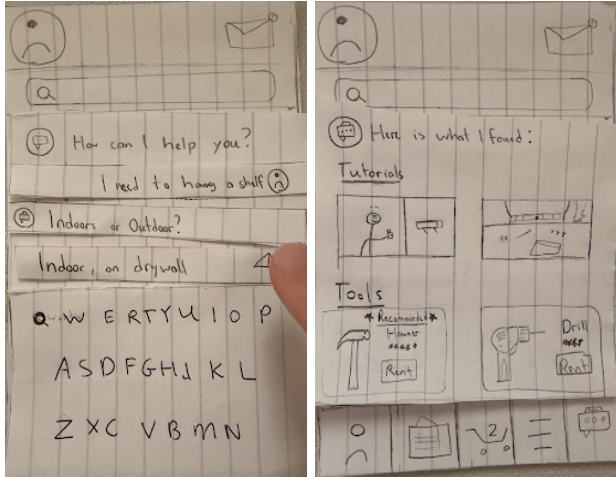 How can I help you?
I need to hang a shelf
Indoors or Outdoor?
Indoor, on drywall
Q W E R T Y U I O P
A S D F G H J K L
Z X C V B M N
Here is what I found:
Tutorials
Tools
* Recommended *
Hammer
Rent
Drill
Rent
2